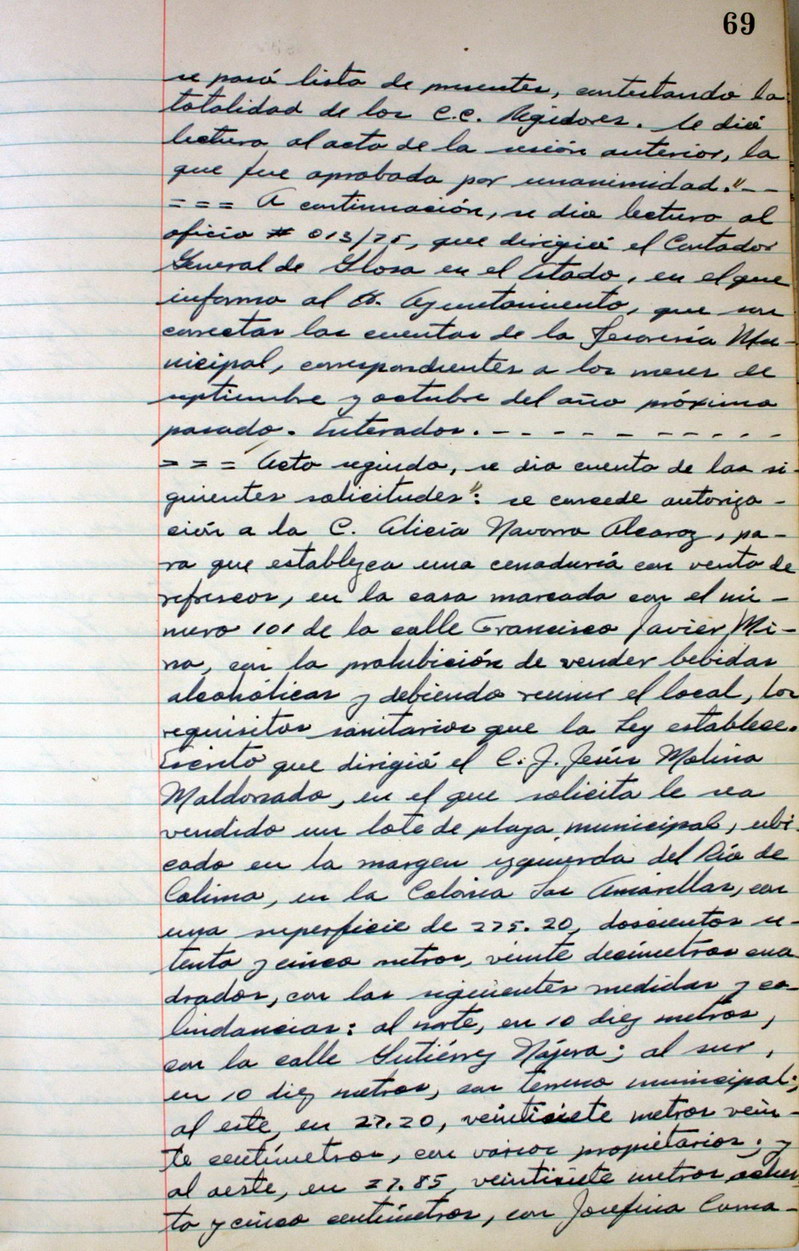 69
se pasó lista de presentes, contestando la
totalidad de los C.C. Regidores. Se dió
lectura al acta de la sesión anterior, la
que fue aprobada por unanimidad." - -
= = = A continuación, se dio lectura al
oficio # 013/75, que dirigió el Contador
General de Glosa en el Estado, en el que
informa al H. Ayuntamiento, que son
correctas las cuentas de la Tesorería Mu-
nicipal, correspondientes a los meses de
septiembre y octubre del año próximo
pasado. Enterados. - - - - - - - - - -
= = = Acto seguido, se dio cuenta de las si-
guientes solicitudes": se concede autoriza-
ción a la C. Alicia Navarro Alcaraz, pa-
ra que establezca una cenaduría con venta de
refrescos, en la casa marcada con el nú-
mero 101 de la calle Francisco Javier Mi-
na, con la prohibición de vender bebidas
alcohólicas y debiendo reunir el local, los
requisitos sanitarios que la Ley establece.
Escrito que dirigió el C. J. Jesús Molina
Maldonado, en el que solicita le sea
vendido un lote de playa municipal, ubi-
cado en la margen izquierda del Río de
Colima, en la Colonia Las Amarillas, con
una superficie de 275.20, doscientos se-
tenta y cinco metros, veinte decímetros cua-
drados, con las siguientes medidas y co-
lindancias: al norte, en 10 diez metros,
con la calle Gutiérrez Nájera; al sur,
en 10 diez metros, con terreno municipal;
al este, en 27.20, veintisiete metros vein-
te centímetros, con varios propietarios; y
al oeste, en 27.85, veintisiete metros ochen
ta y cinco centímetros, con Josefina Cama-